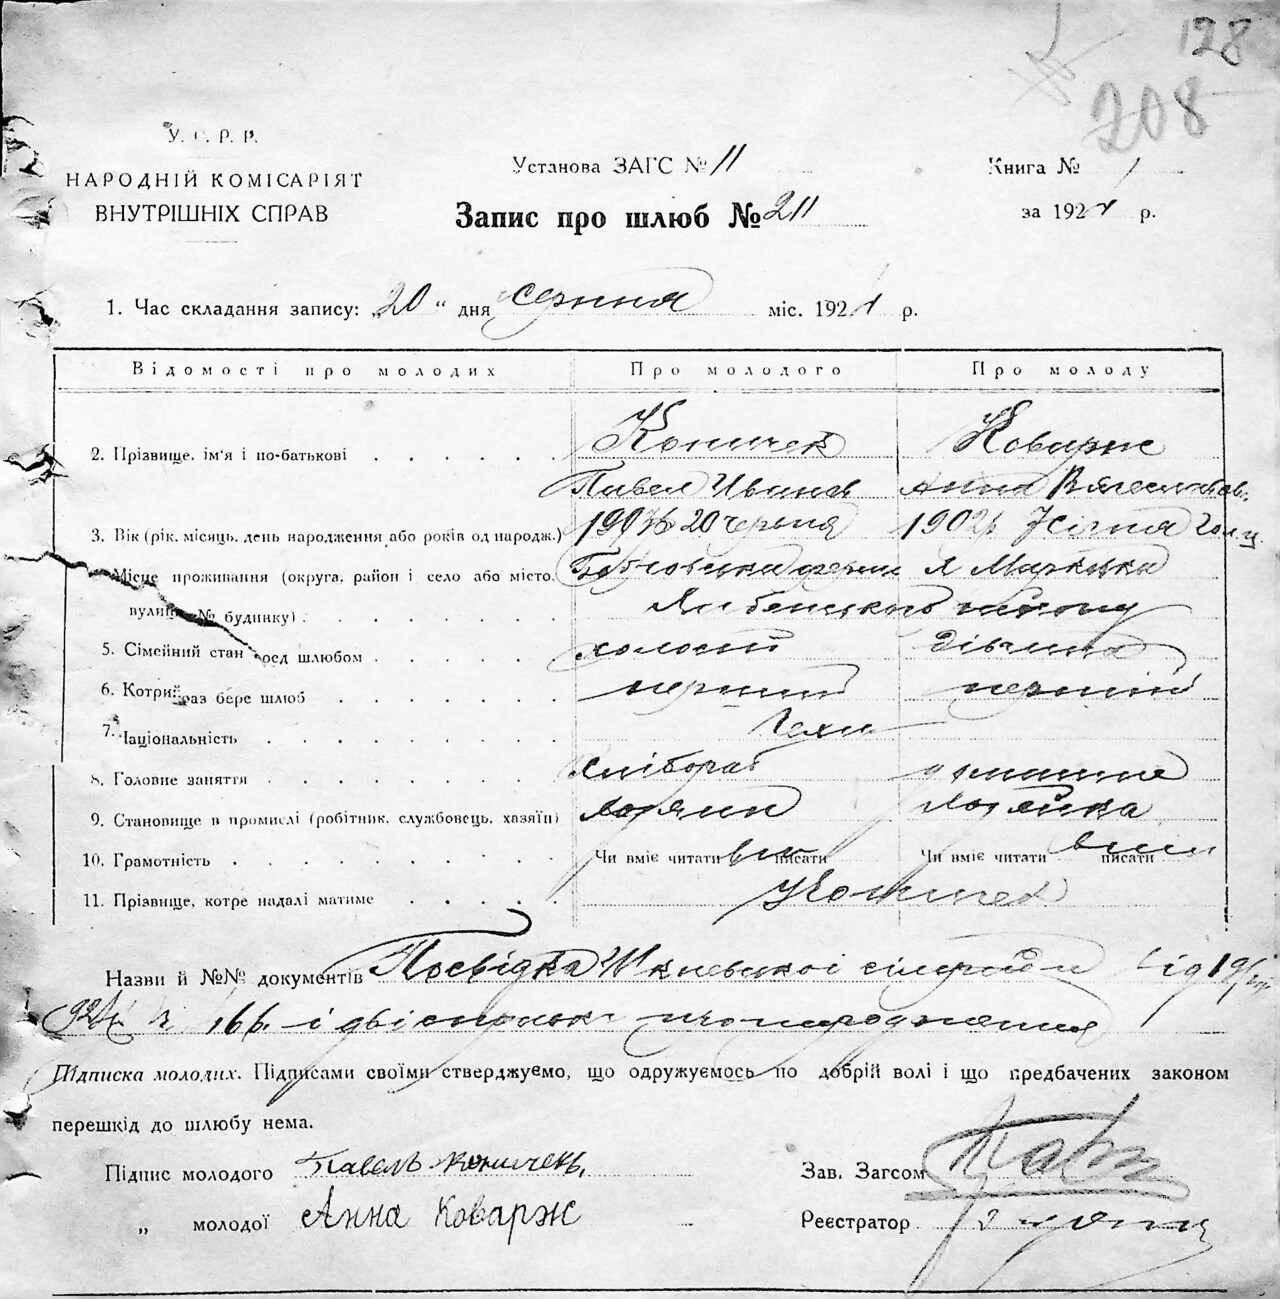 128
208
У. С. Р. Р.
НАРОДНІЙ КОМІСАРІЯТ
ВНУТРІШНІХ СПРАВ
Установа ЗАГС № 11
Книга № 1
Запис про шлюб № 211
за 192 р.
1. Час складання запису: „20“ дня серпня міс. 192 р.
Відомості про молодих Про молодого Про молоду
2. Прізвище, ім'я і по-батькові Коничек Коварж
Павел Иванов Анна
3. Вік (рік, місяць, день народження або років од народж.) 20 червня 1902р 7 січня
Місце проживання (округа, район і село або місто, Марківка
вулиця № будинку) району
5. Сімейний стан перед шлюбом холостий дівчина
6. Котрий раз бере шлюб перший перший
7. Національність Чехи
8. Головне заняття хлібороб домашнє
9. Становище в промислі (робітник, службовець, хазяїн) хазяин хазяйка
10. Грамотність Чи вміє читати вміє писати Чи вміє читати вміє писати
11. Прізвище, котре надалі матиме
Назви й №№ документів Посвідка сільради від 19/
166 і дві про народження
Підписка молодих. Підписами своїми стверджуємо, що одружуємось по добрій волі і що предбачених законом
перешкід до шлюбу нема.
Підпис молодого Павелъ Коничекъ
Зав. Загсом
„ молодої Анна Коварж
Реєстратор